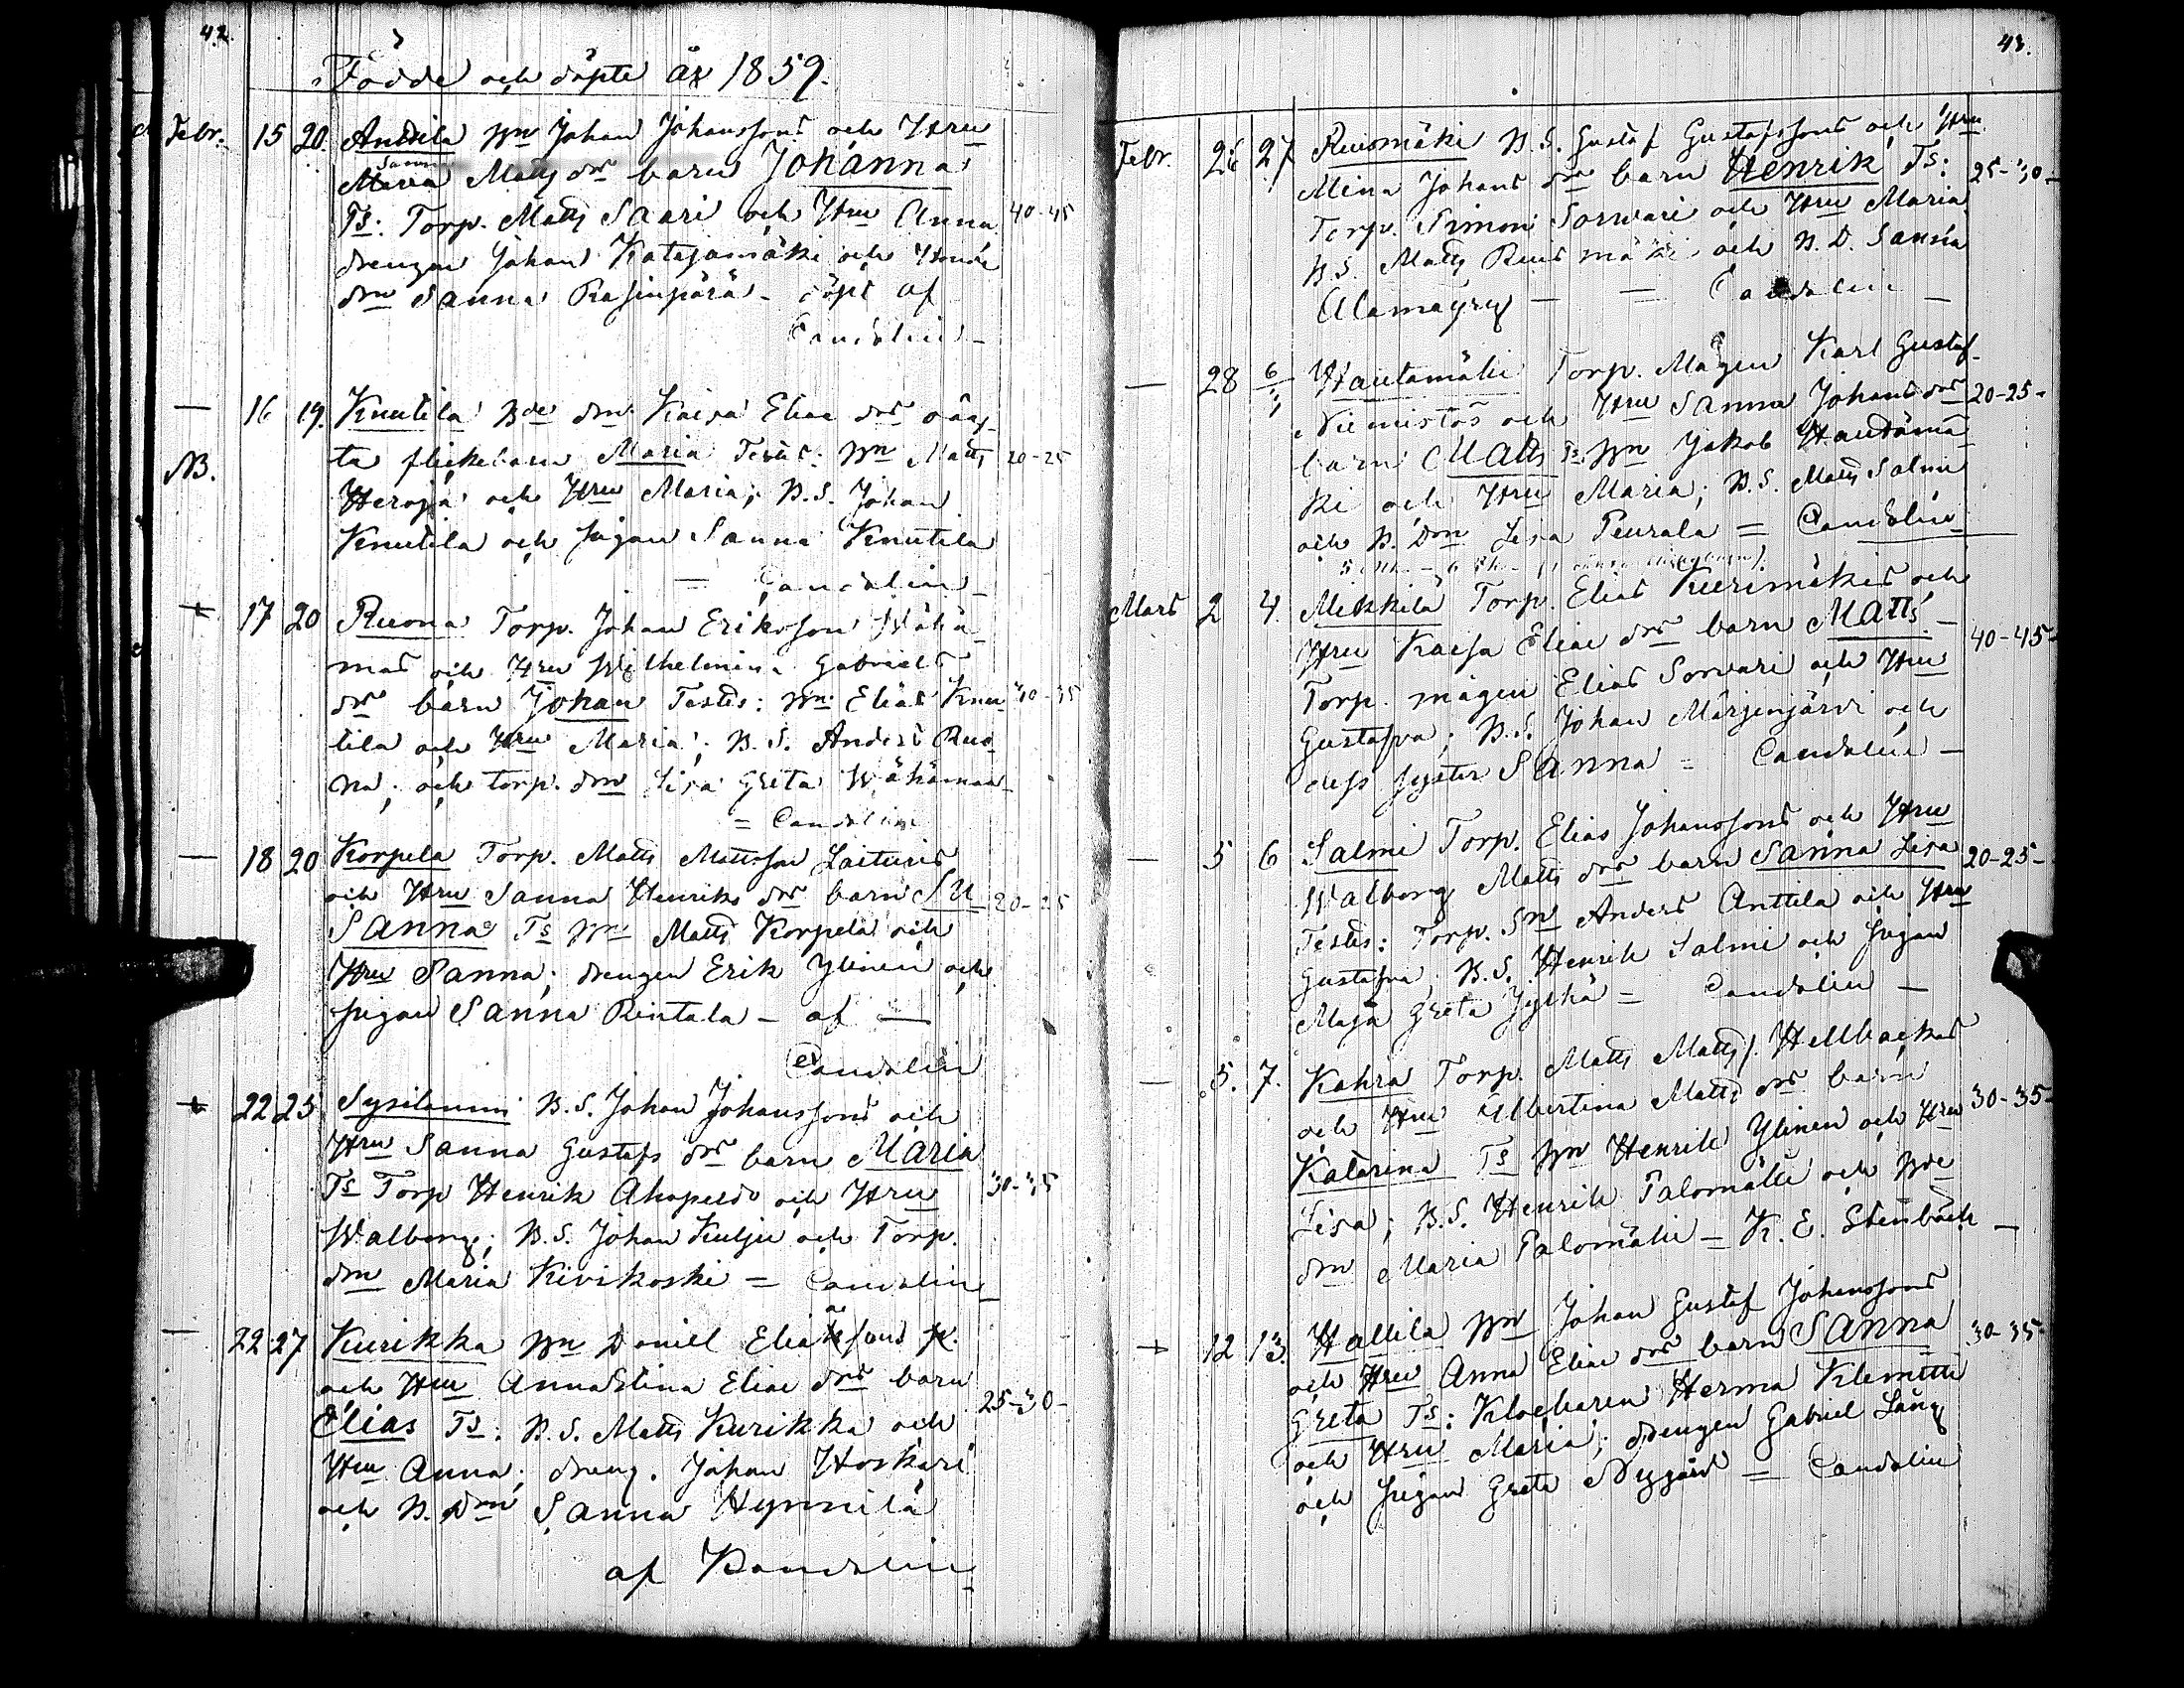 42.
Födde och döpte år 1859.
Febr. 15 20. Anttila Bn Johan Johanssons och Hru
Sanna
Maria Matts dr barn Johanna
Ts: Torp. Matts Saari och Hru Anna 40-45
drengen Johan Katajamäki och
dn Sanna Rasinperä - döpt af
Candelin -
— 16 19. Knutila Bde dn Kaisa Eliae drs oäg-
NB. ta flickebarn Maria Testes: Bn Matts 20-25
Heroja och Hru Maria; B.S. Johan
Knutila och pigan Sanna Knutila
= Candelin -
17 20 Ruona Torp. Johan Eriksson Wähä-
mas och Hru Wilhelmina Gabriels
dr barn Johan Testes: Bn Elias Knu- 30-35
tila och Hru Maria; B.S. Anders Ruo-
na; och torp. dn Lisa Greta Wähämaa -
= Candelin
— 18 20 Korpela Torp. Matts Mattsson Laituris
och Hru Sanna Henriks dr barn Su- 20-25
Sanna Ts Bn Matts Korpela och
Hru Sanna; drengen Erik Ylinen och
pigan Sanna Rintala - af —
Candelin
22 25 Sysilammi B.S. Johan Johanssons och
Hru Sanna Gustafs drs barn Maria
Ts Torp Henrik Ahopelto och Hru 30-35
Walborg; B.S. Johan Kulju och Torp.
dn Maria Kivikoski = Candelin -
— 22 27 Kurikka Bn Daniel Elia sons
och Hru Anna Stina Eliae drs barn
Elias Ts: B.S. Matts Kurikka och 25-30-
Hru Anna; dreng. Johan Hoskari
och B. Dn Sanna Hynnilä
af Kandelin -
43.
Febr. 26 27 Ruismäki B.S. Gustaf Gustafssons och Hru
Mina Johans dr barn Henrik Ts: 25-30-
Torp. Simon Sorvari och Hru Maria
B.S. Matts Ruismäki och B.D. Sanna
Alamäyry — — Candelin —
— 28 6/3 Hautamäki Torp. Mågen Karl Gustaf
Niemistös och Hru Sanna Johans drs 20-25-
barn Matts Ts Bn Jakob Hautamä-
ki och Hru Maria; B.S. Matts Salmi
och B. Dn Lisa Peurala = Candelin -
Mars 2 4. Mikkilä Torp. Elias Kuusimäkis och
Hru Kaisa Eliae drs barn Matts - 40-45-
Torp. mågen Elias Sorvari och Hru
Gustafva; B.S. Johan Marjenjärvi och
dess syster Sanna = Candelin —
— 5 6 Salmi Torp. Elias Johanssons och Hru
Walborg Matts drs barn Sanna Lisa 20-25-
Testes: Torp. Sn Anders Anttila och Hru
Gustafva; B.S. Henrik Salmi och pigan
Maja Greta Jylhä = Candelin —
— 5. 7. Kahra Torp. Matts Matts/. Hellbackas
och Hru Albertina Matts drs barn 30-35-
Katarina Ts Bn Henrik Ylinen och Hru
Lisa; B.S. Henrik Palomäki och Bde
dn Maria Palomäki = K. E. Stenbäck —
12 13. Hallila Bn Johan Gustaf Johanssons
och Hru Anna Eliae drs barn Sanna 30-35-
Greta Ts: Klockaren Herman Klemetti
och Hru Maria; drengen Gabriel Lång
och pigan Greta Nygård = Candelin